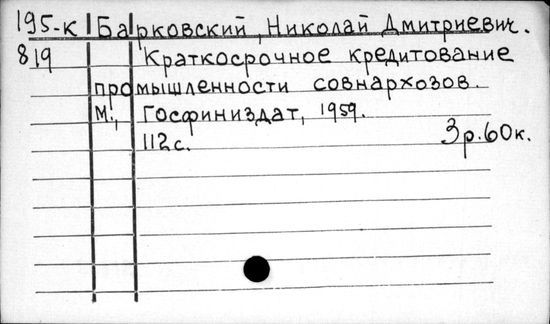 195-к Барковский, Николай Дмитриевич.
819 Краткосрочное кредитование
промышленности совнархозов.
М., Госфиниздат, 1959.
112с. 3р.60к.